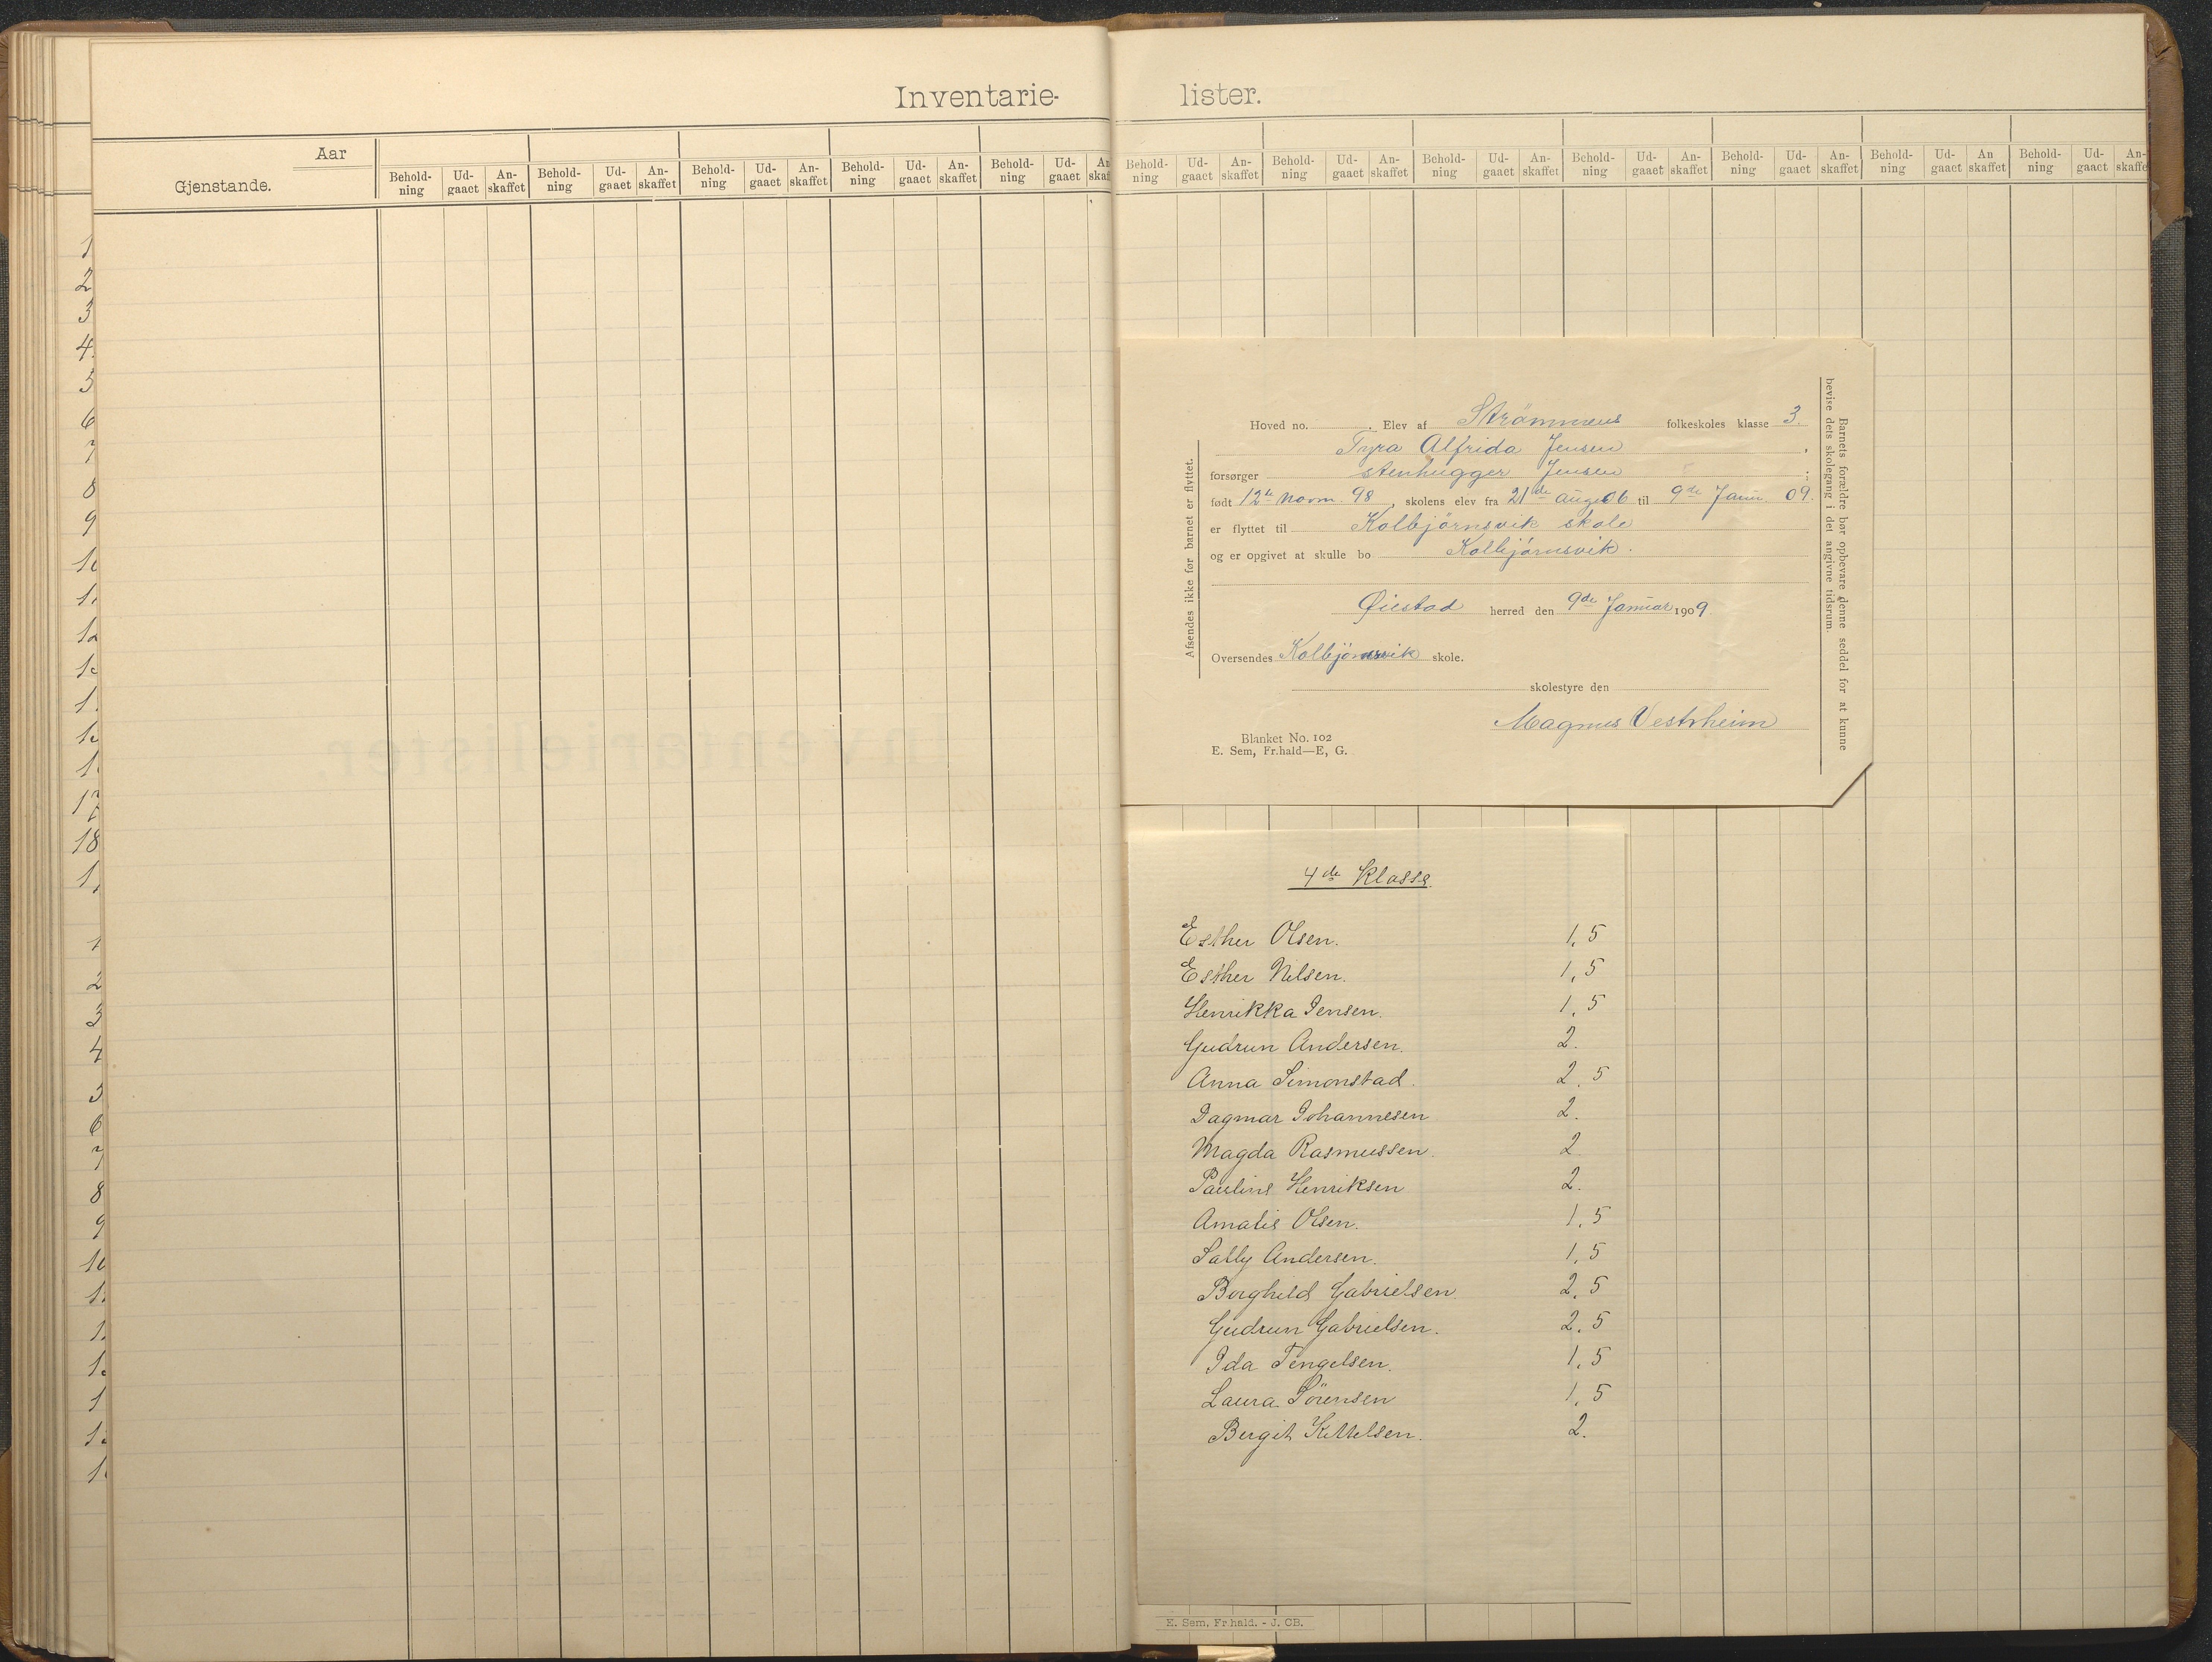 Inventarie-
Aar
Gjenstande.
Behold-ning Ud-gaaet An-skaffet Behold-ning Ud-gaaet An-skaffet Behold-ning Ud-gaaet An-skaffet Behold-ning Ud-gaaet An-skaffet Behold-ning Ud-gaaet An skaf
lister.
Behold-ning Ud-gaaet An-skaffet Behold-ning Ud-gaaet An-skaffet Behold-ning Ud-gaaet An-skaffet Behold-ning Ud-gaaet An-skaffet Behold-ning Ud-gaaet An-skaffet Behold-ning Ud-gaaet An skaffet Behold-ning Ud-gaaet An-skaffe
Afsendes ikke før barnet er flyttet.
Hoved no. . Elev af Strömmens folkeskoles klasse 3.
Tyra Alfrida Jensen
forsørger stenhugger Jensen ;
født 12te novm. 98, skolens elev fra 21de aug. 06 til 9de Janu. 09.
er flyttet til Kolbjörnsvik skole
og er opgivet at skulle bo Kolbjörnsvik.
Øiestad herred den 9de Januar 1909.
Oversendes Kolbjörnsvik skole.
skolestyre den
Magnus Vestrheim
Blanket No. 102
E. Sem, Fr.hald—E, G.
Barnets forældre bør opbevare denne seddel for at kunne
bevise dets skolegang i det angivne tidsrum.
4de Klasse
Esther Olsen. 1,5
Esther Nilsen. 1,5
Henrikka Jensen. 1,5
Gudrun Andersen. 2.
Anna Simonstad. 2,5
Dagmar Johannesen 2.
Magda Rasmussen. 2
Pauline Henriksen 2.
Amalie Olsen. 1,5
Sally Andersen. 1,5
Borghild Gabrielsen 2,5
Gudrun Gabrielsen. 2,5
Ida Tengelsen. 1,5
Laura Sörensen 1,5
Bergit Kittelsen. 2.
E. Sem, Fr.hald. - J. CB.